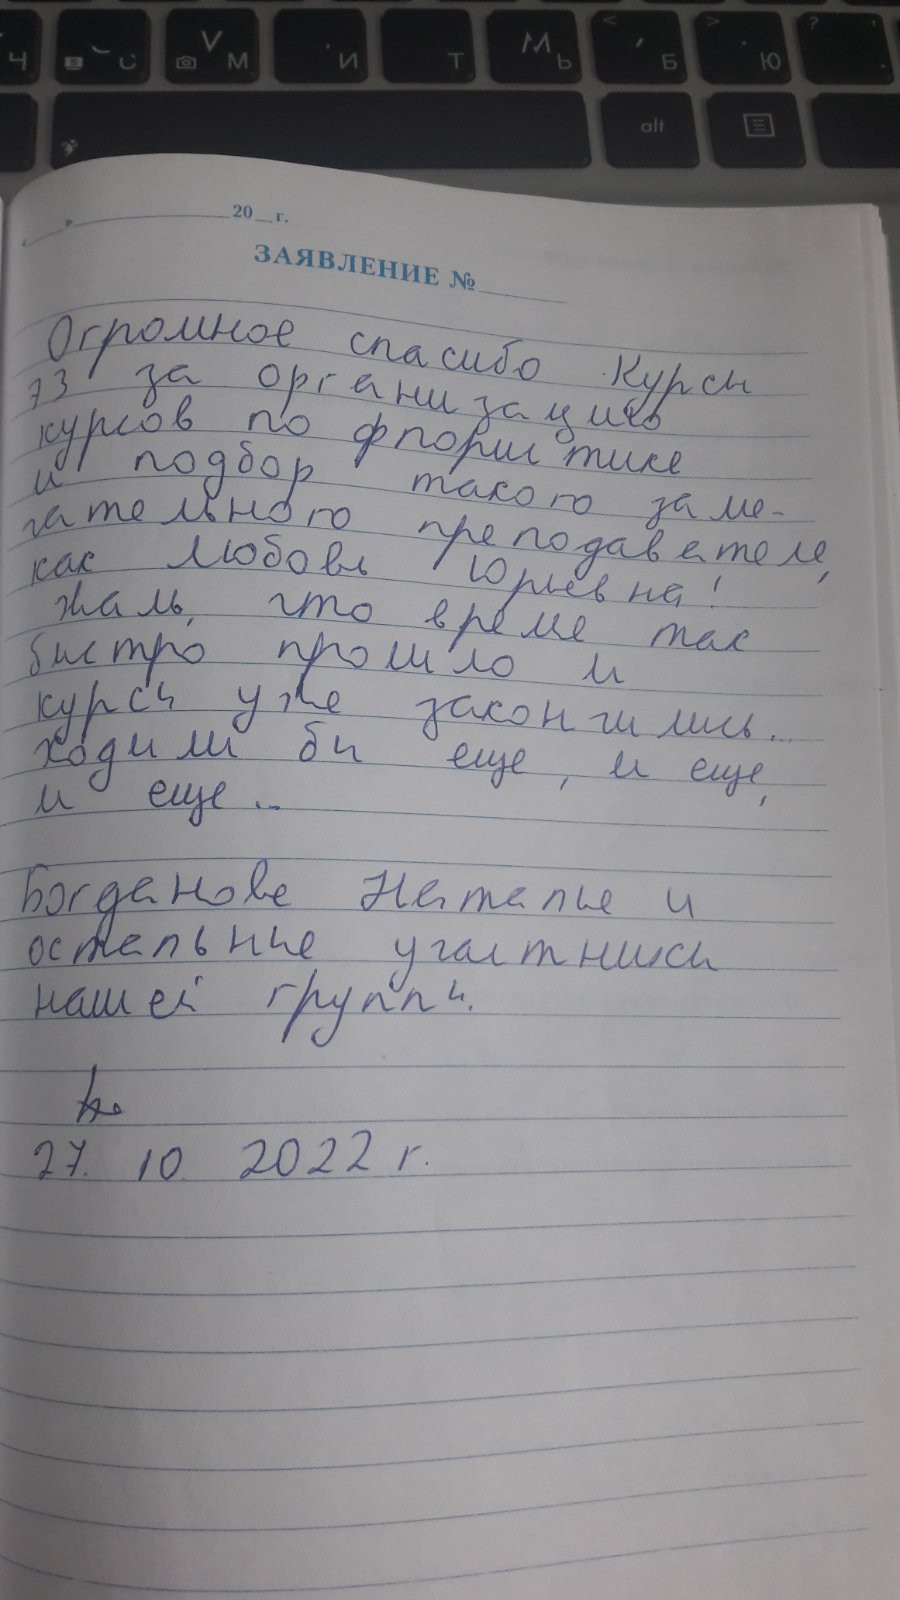 Ч С V М И Т М Ь < Б > Ю ?
alt
« » 20 г.
ЗАЯВЛЕНИЕ №
Огромное спасибо Курсы
73 за организацию
курсов по флористике
и подбор такого заме-
чательного преподавателя,
как Любовь Юрьевна!
Жаль, что время так
быстро прошло и
курсы уже закончились...
ходили бы еще, и еще,
и еще...
Богданова Наталья и
остальные участники
нашей группы.
27. 10. 2022 г.